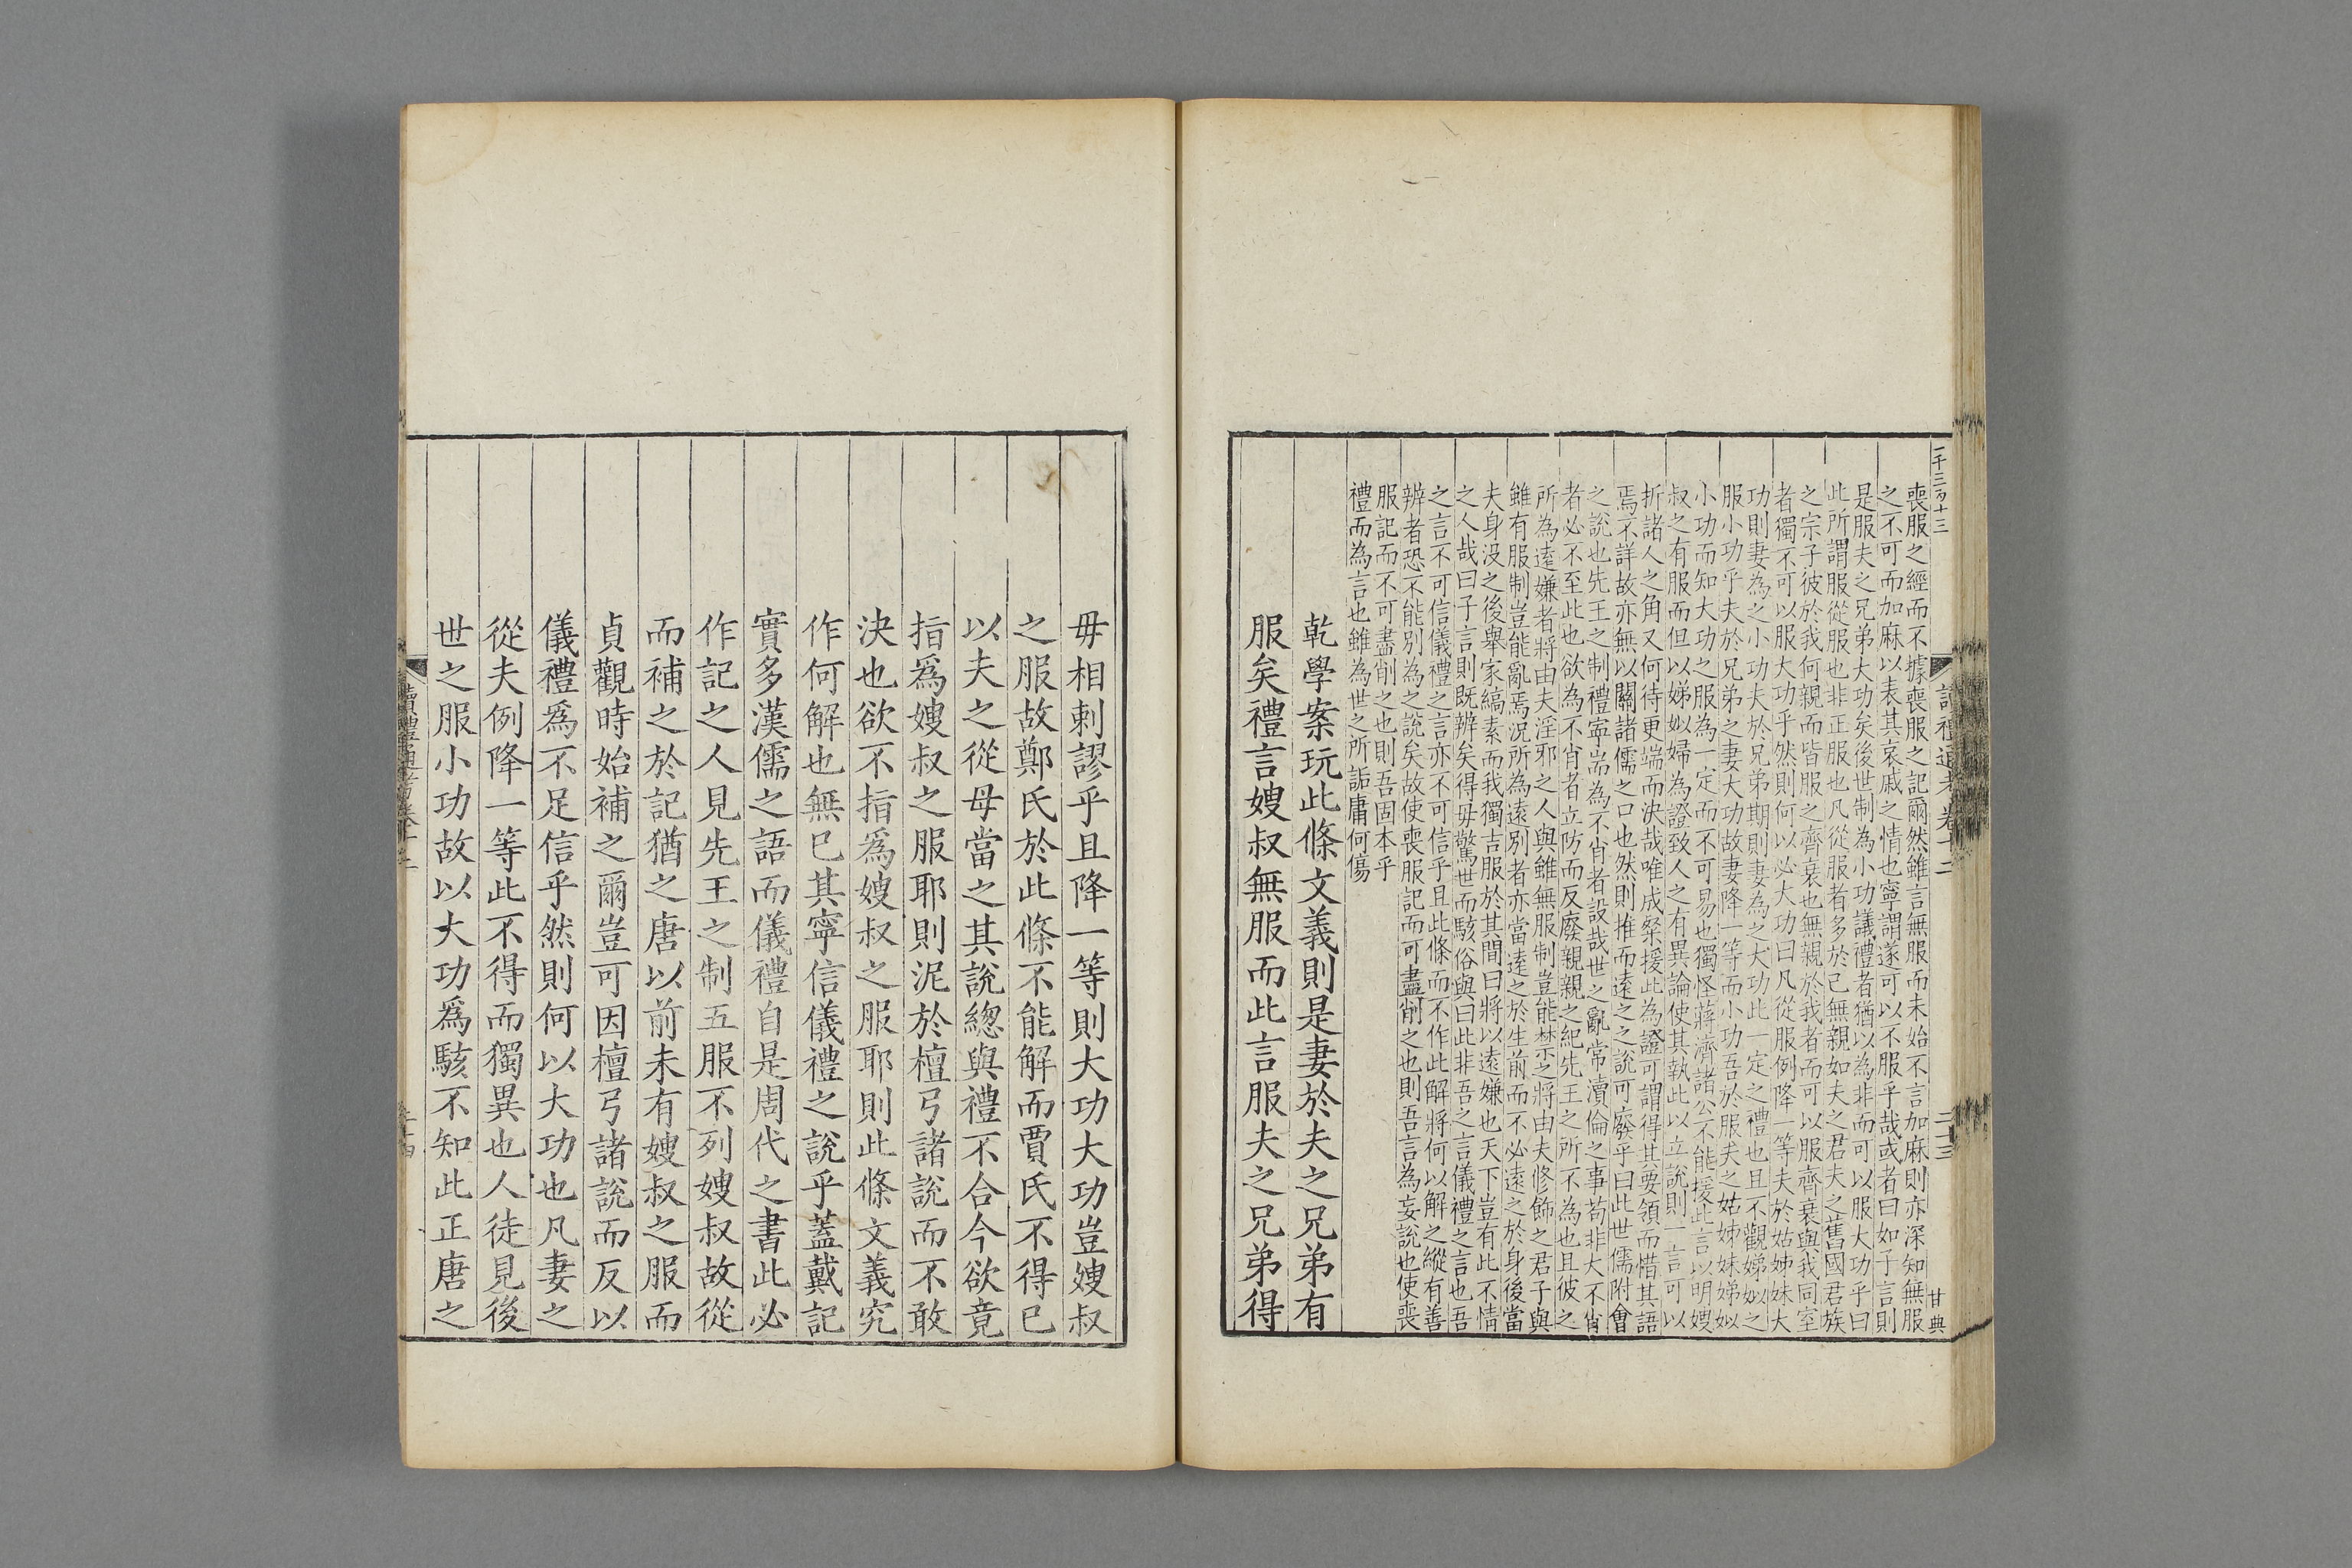 一千三百十三
讀禮通考卷十二
二十三
甘典
喪服之經而不據喪服之記爾然雖言無服而未始不言加麻則亦深知無服
之不可而加麻以表其哀戚之情也寧謂遂可以不服乎哉或者曰如子言則
是服夫之兄弟大功矣後世制為小功議禮者猶以為非而可以服大功乎曰
此所謂服從服也非正服也凡從服者多於己無親如夫之君夫之舊國君族
之宗子彼於我何親而皆服之齊衰也無親於我者而可以服齊衰與我同室
者獨不可以服大功乎然則何以必大功曰凡從服例降一等夫於姑姊妹大
功則妻為之小功夫於兄弟期則妻為之大功此一定之禮也且不觀娣姒之
服小功乎夫於兄弟之妻大功故妻降一等而小功吾於服夫之姑姊妹娣姒
小功而知大功之服為一定而不可易也獨怪蔣濟諸公不能援此言以明嫂
叔之有服而但以娣姒婦為證致人之有異論使其執此以立說則一言可以
折諸人之角又何待更端而決哉唯成粲援此為證可謂得其要領而惜其語
焉不詳故亦無以關諸儒之口也然則推而遠之之說可廢乎曰此世儒附會
之說也先王之制禮寧耑為不肖者設哉世之亂常瀆倫之事苟非大不肖
者必不至此也欲為不肖者立防而反廢親親之紀先王之所不為也且彼之
所為遠嫌者將由夫淫邪之人與雖無服制豈能禁之將由夫修飾之君子與
雖有服制豈能亂焉況所為遠別者亦當遠之於生前而不必遠之於身後當
夫身没之後舉家縞素而我獨吉服於其間曰將以遠嫌也天下豈有此不情
之人哉曰子言則既辨矣得毋驚世而駭俗與曰此非吾之言儀禮之言也吾
之言不可信儀禮之言亦不可信乎且此條而不作此解將何以解之縱有善
辨者恐不能別為之說矣故使喪服記而可盡削之也則吾言為妄說也使喪
服記而不可盡削之也則吾固本乎
禮而為言也雖為世之所詬庸何傷
乾學案玩此條文義則是妻於夫之兄弟有
服矣禮言嫂叔無服而此言服夫之兄弟得
毋相剌謬乎且降一等則大功大功豈嫂叔
之服故鄭氏於此條不能解而賈氏不得已
以夫之從母當之其說總與禮不合今欲竟
指爲嫂叔之服耶則泥於檀弓諸說而不敢
決也欲不指爲嫂叔之服耶則此條文義究
作何解也無已其寧信儀禮之說乎蓋戴記
實多漢儒之語而儀禮自是周代之書此必
作記之人見先王之制五服不列嫂叔故從
而補之於記猶之唐以前未有嫂叔之服而
貞觀時始補之爾豈可因檀弓諸說而反以
儀禮爲不足信乎然則何以大功也凡妻之
從夫例降一等此不得而獨異也人徒見後
世之服小功故以大功爲駭不知此正唐之
讀禮通考卷十二
二十四